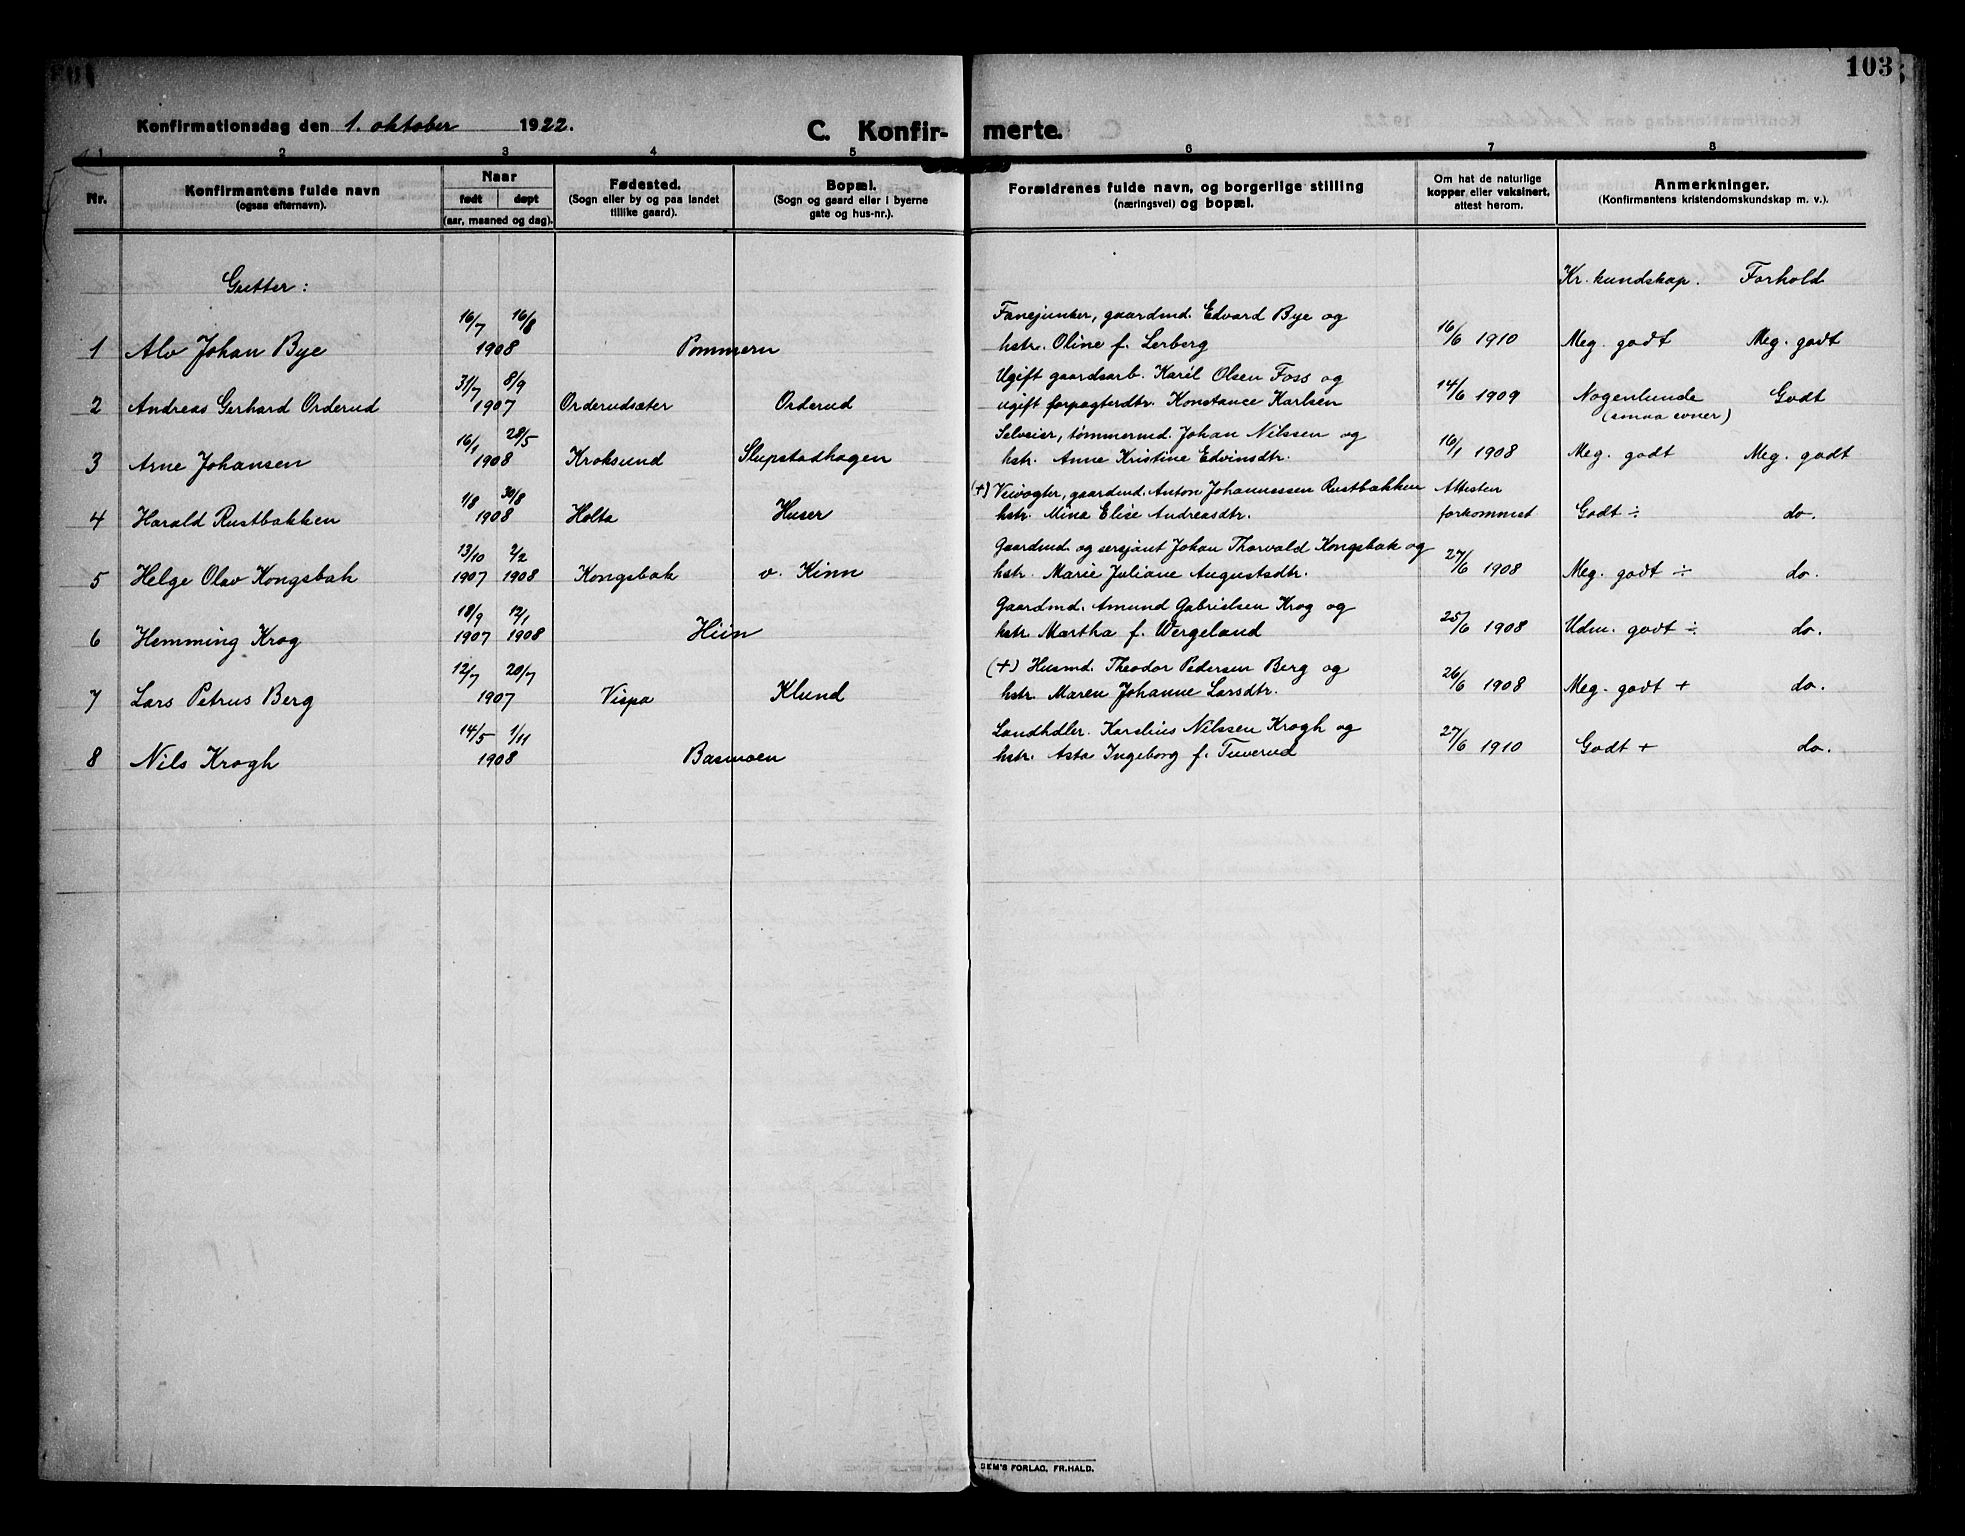 103
Konfirmationsdag den 1. oktober 1922.
C. Konfir- merte.
1 2 3 4 5 6 7 8
Nr.
Konfirmantens fulde navn
(ogsaa efternavn).
Naar
født døpt
(aar, maaned og dag).
Fødested.
(Sogn eller by og paa landet
tillike gaard).
Bopæl.
(Sogn og gaard eller i byerne
gate og hus-nr.).
Forældrenes fulde navn, og borgerlige stilling
(næringsvei) og bopæl.
Om hat de naturlige
kopper eller vaksinert,
attest herom.
Anmerkninger.
(Konfirmantens kristendomskundskap m. v.).
Gutter:
Kr. kundskap. Forhold
16/7 16/8 Fanejunker, gaardmd. Edvard Bye og
1 Alv Johan Bye 1908 Pommern hstr. Oline f. Lerberg 16/6 1910 Meg. godt Meg. godt
31/7 8/9 Ugift gaardsarb. Karil Olsen Foss og
2 Andreas Gerhard Orderud 1907 Orderudsæter Orderud ugift forpagterdtr. Konstance Karlsen 14/6 1909 Nogenlunde Godt
(smaa evner)
16/1 28/5 Selveier, tømmermd. Johan Nilssen og
3 Arne Johansen 1908 Kroksund Slupstadhagen hstr. Anne Kristine Edvinsdtr. 16/1 1908 Meg. godt Meg. godt
1/8 30/8 (+) Veivogter, gaardmd. Anton Johannessen Rustbakken Attesten
4 Harald Rustbakken 1908 Holta Huser hstr. Mina Elise Andreasdtr. forkommet Godt ÷ do.
13/10 2/2 Gaardmd. og sersjant Johan Thorvald Kongsbak og
5 Helge Olav Kongsbak 1907 1908 Kongsbak v. Kinn hstr. Marie Juliane Augustsdtr. 27/6 1908 Meg. godt ÷ do.
18/9 12/1 Gaardmd. Amund Gabrielsen Krog og
6 Hemming Krog 1907 1908 Hiin hstr. Martha f. Wergeland 25/6 1908 Udm. godt ÷ do.
12/7 20/7 (+) Husmd. Theodor Pedersen Berg og
7 Lars Petrus Berg 1907 Vispa Klund hstr. Maren Johanne Larsdtr. 26/6 1908 Meg. godt + do.
14/5 1/11 Landhdler. Karelius Nilssen Krogh og
8 Nils Krogh 1908 Basmoen hstr. Asta Ingeborg f. Tuverud 27/6 1910 Godt + do.
DEM'S FORLAG, FR.HALD.